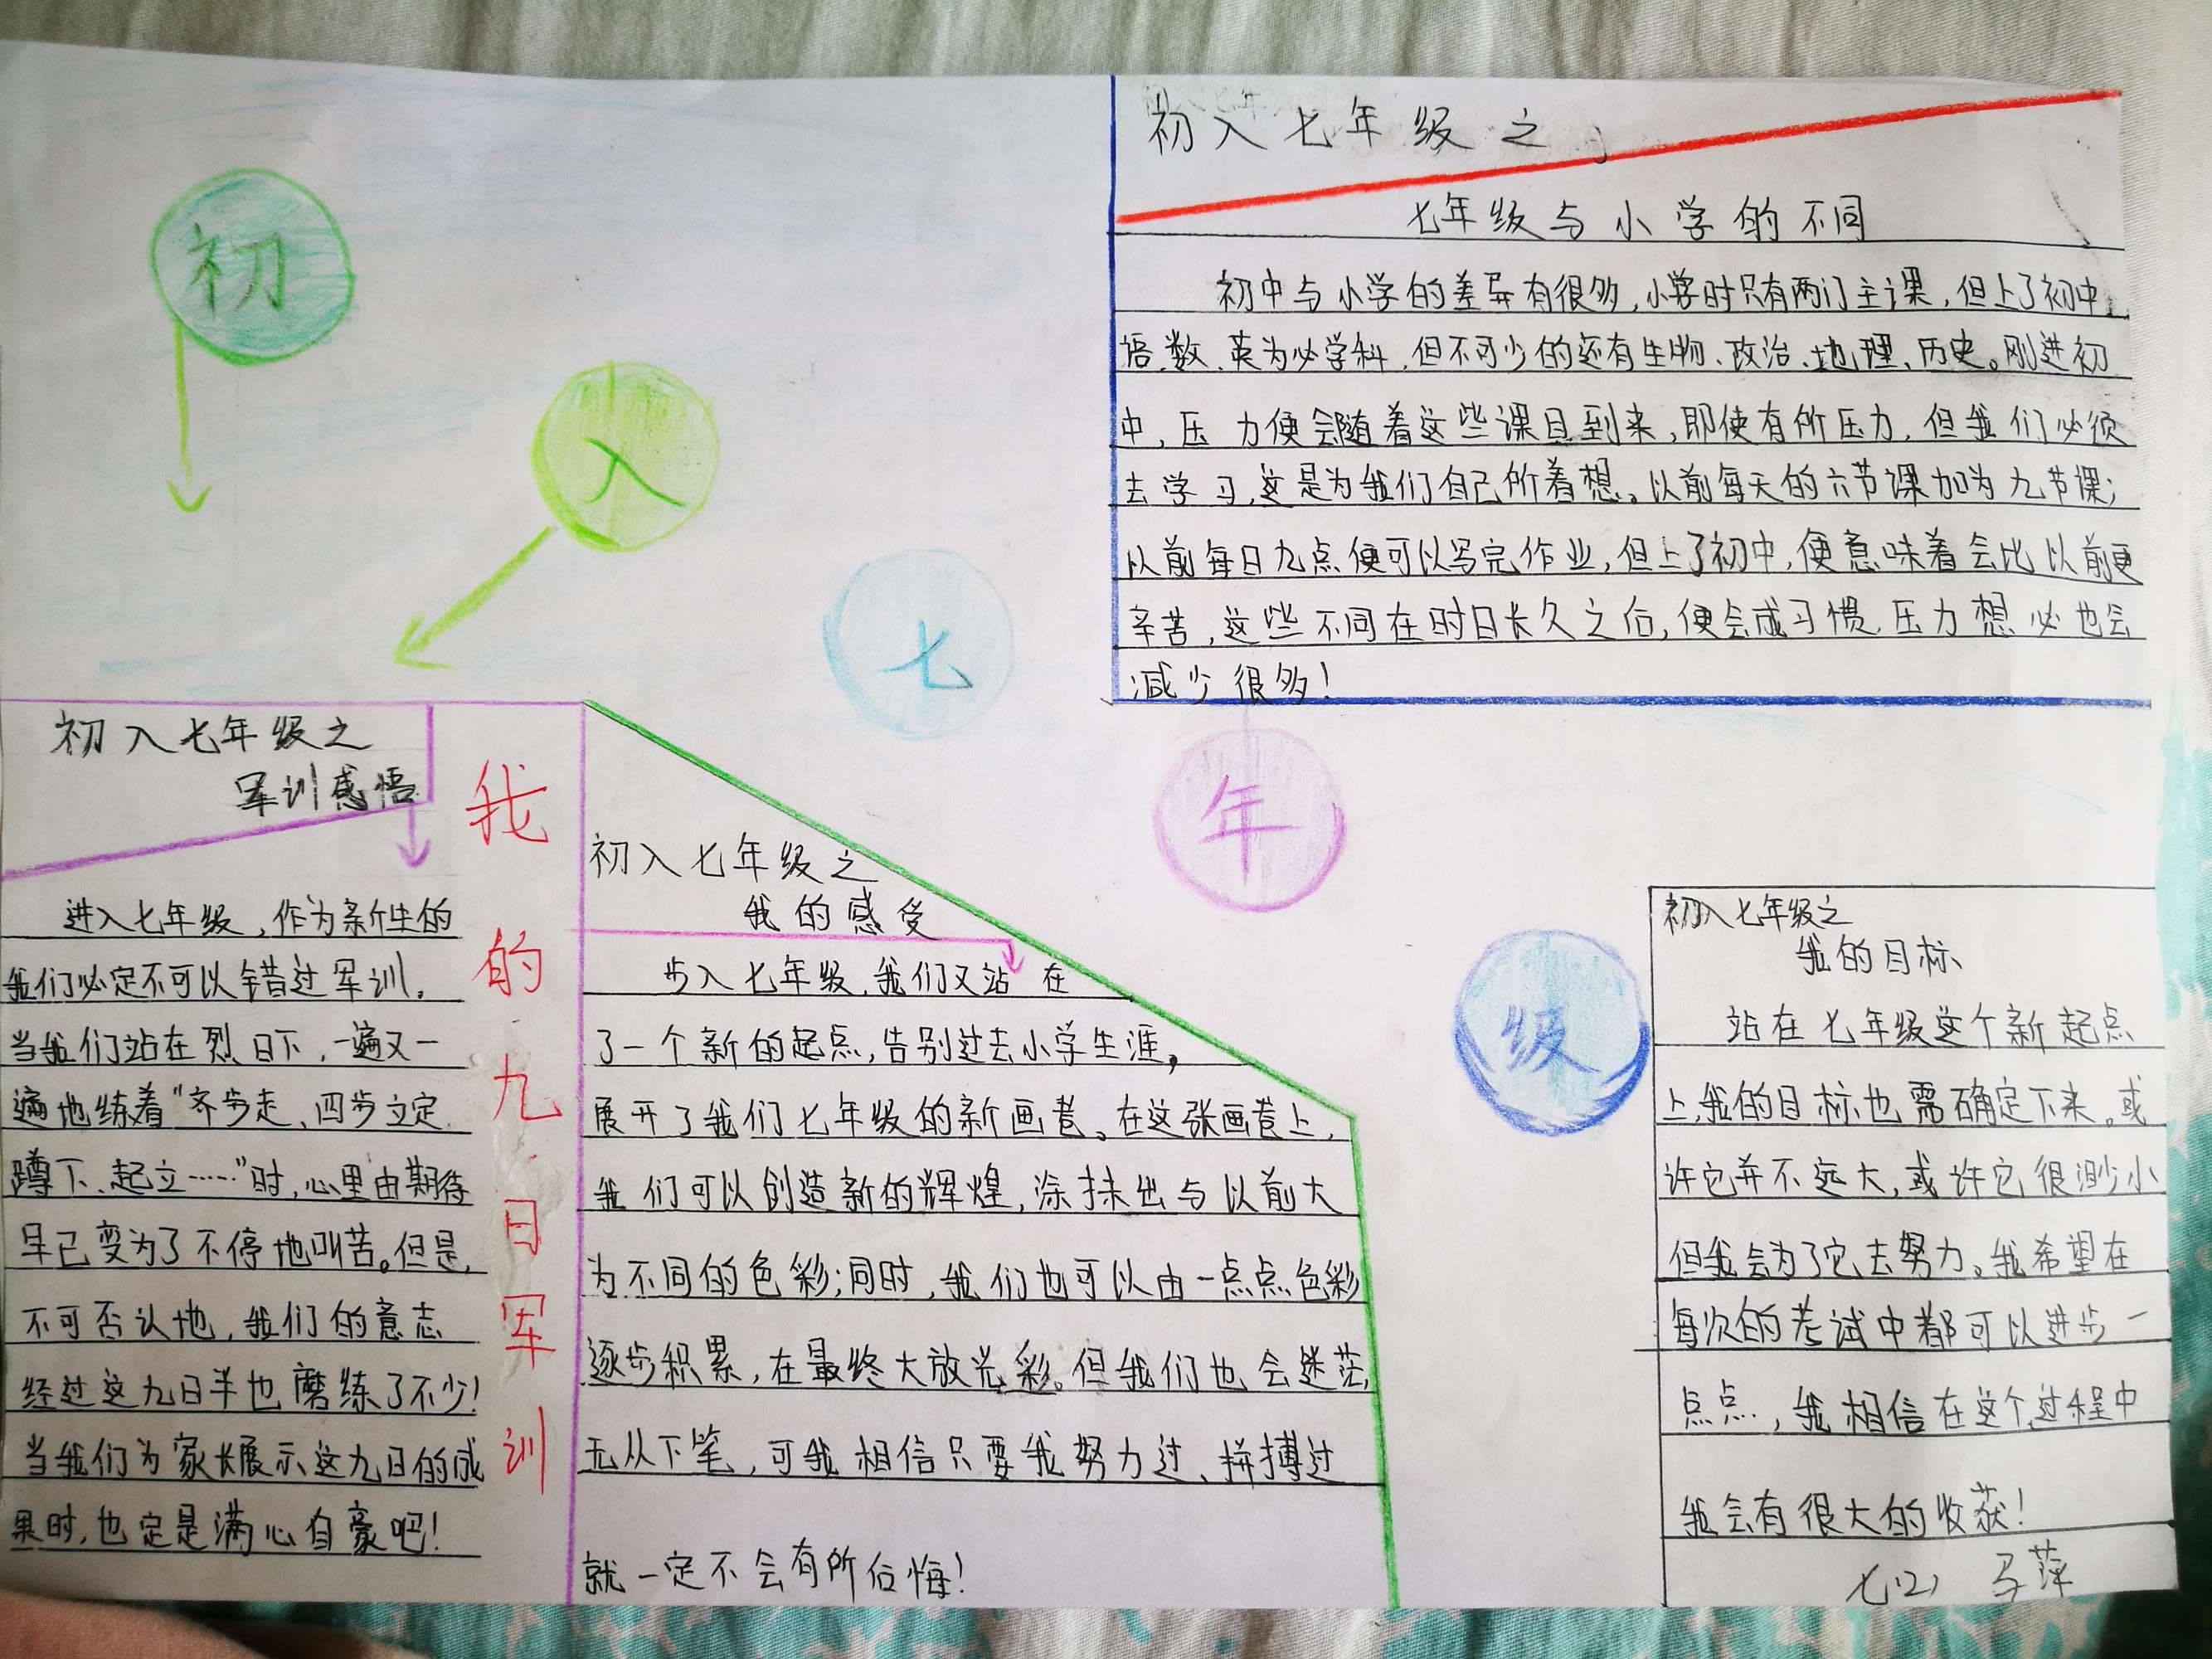 初
入
七
年
级
初入七年级之
七年级与小学的不同
初中与小学的差异有很多,小学时只有两门主课,但上了初中,
语、数、英为必学科,但不可少的还有生物、政治、地理、历史。刚进初
中,压力便会随着这些课目到来,即使有所压力,但我们必须
去学习,这是为我们自己所着想。以前每天的六节课加为九节课;
以前每日九点便可以写完作业,但上了初中,便意味着会比以前更
辛苦,这些不同在时日长久之后,便会成习惯,压力想必也会
减少很多!
初入七年级之
军训感悟
进入七年级,作为新生的
我们必定不可以错过军训。
当我们站在烈日下,一遍又一
遍地练着“齐步走、四步立定、
蹲下、起立……”时,心里由期待
早已变为了不停地叫苦。但是,
不可否认地,我们的意志
经过这九日半也磨练了不少!
当我们为家长展示这九日的成
果时,也定是满心自豪吧!
我的九日军训
初入七年级之
我的感受
步入七年级,我们又站在
了一个新的起点,告别过去小学生涯,
展开了我们七年级的新画卷。在这张画卷上,
我们可以创造新的辉煌,涂抹出与以前大
为不同的色彩;同时,我们也可以由一点点色彩
逐步积累,在最终大放光彩。但我们也会迷茫,
无从下笔,可我相信只要我努力过、拼搏过
就一定不会有所后悔!
初入七年级之
我的目标
站在七年级这个新起点
上,我的目标也需确定下来。或
许它并不远大,或许它很渺小
但我会为了它去努力。我希望在
每次的考试中都可以进步一
点点,我相信在这个过程中
我会有很大的收获!
七(2) 马萍